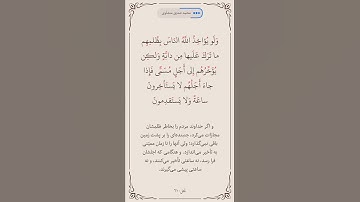 وَلَو يُؤاخِذُ اللَّهُ النّاسَ بِظُلمِهِم
ما تَرَكَ عَلَيها مِن دابَّةٍ وَلٰكِن
يُؤَخِّرُهُم إِلىٰ أَجَلٍ مُسَمًّى فَإِذا
جاءَ أَجَلُهُم لا يَستَأخِرونَ
ساعَةً وَلا يَستَقدِمونَ
و اگر خداوند مردم را بخاطر ظلمشان
مجازات می‌کرد، جنبنده‌ای را بر پشت زمین
باقی نمی‌گذارد؛ ولی آنها را تا زمان معیّنی
به تأخیر می‌اندازد. و هنگامی که اجلشان
فرا رسد، نه ساعتی تأخیر می‌کنند، و نه
ساعتی پیشی می‌گیرند.